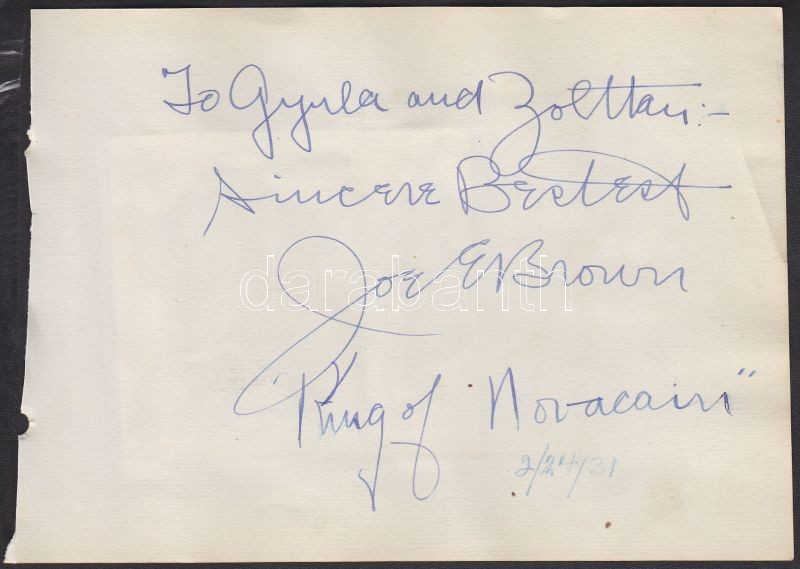 To Gyula and Zolttan:-
Sincere Bestest
Joe E Brown
darabanth
"King of Novacain"
2/24/31